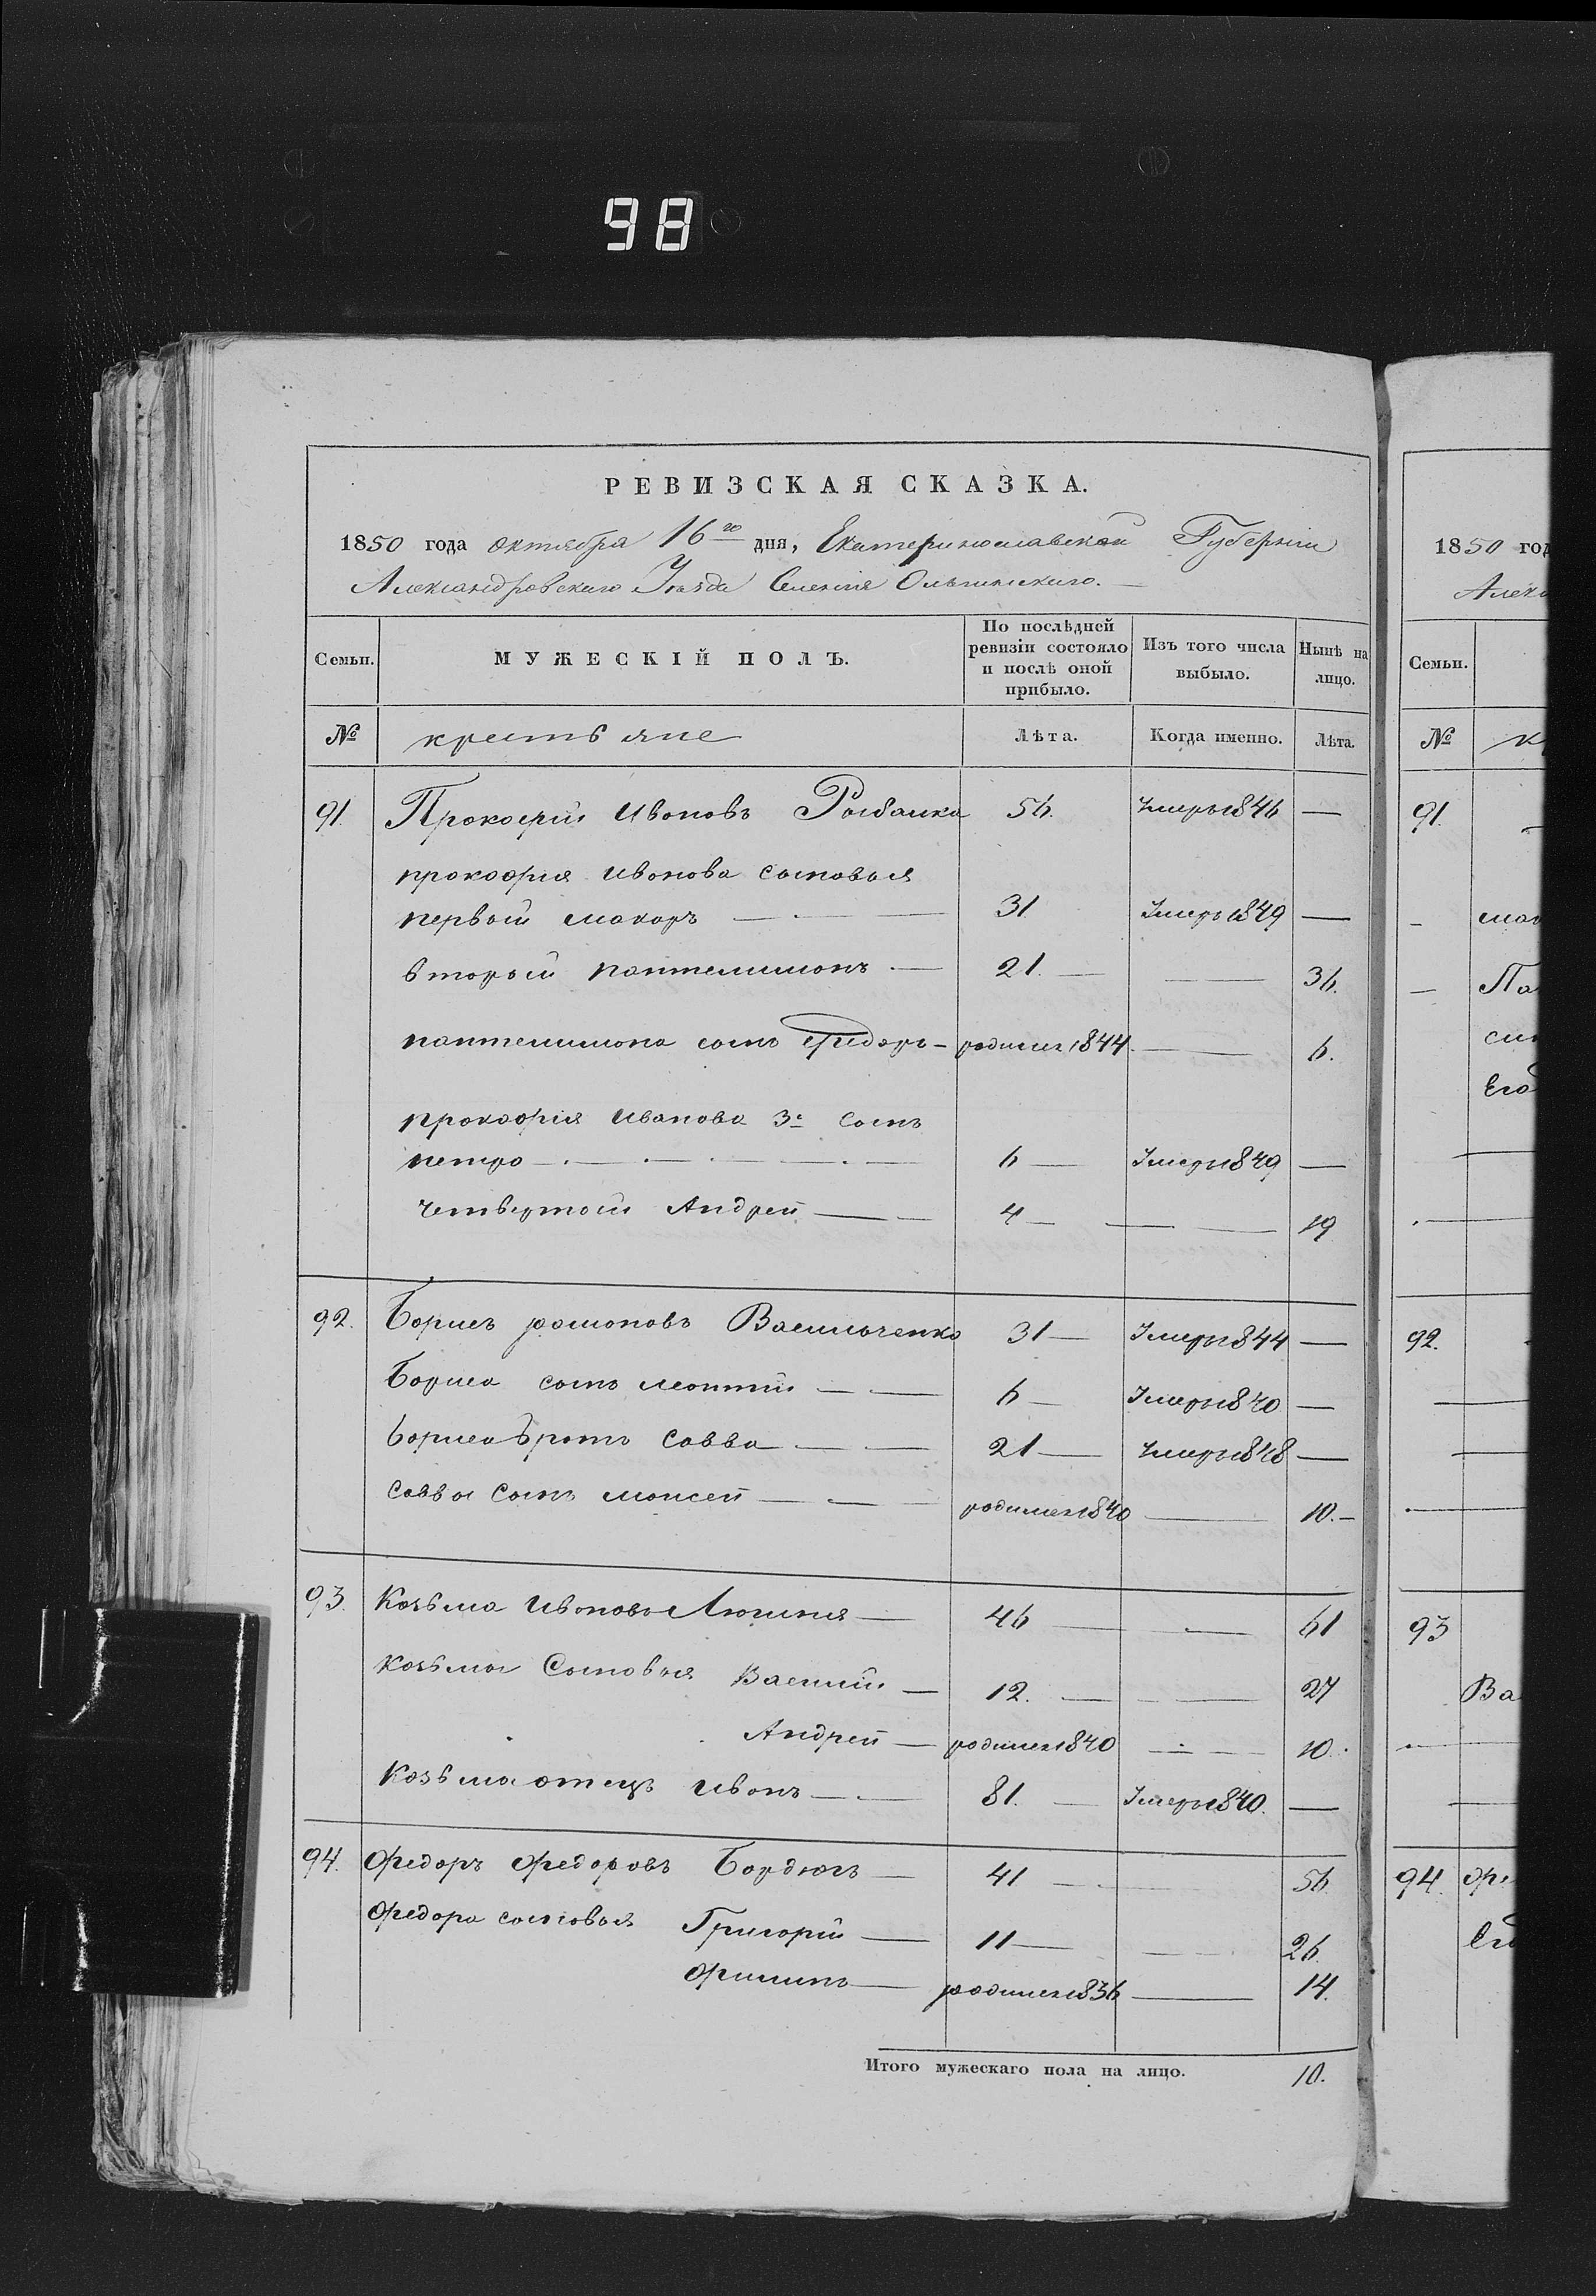 98
РЕВИЗСКАЯ СКАЗКА.
1850 года октября 16го дня, Екатеринославской Губернiи
Александровского Уѣзда Селенiя Ольгинского.
Семьи. МУЖЕСКIЙ ПОЛЪ. По послѣдней ревизiи состояло и послѣ оной прибыло. Изъ того числа выбыло. Нынѣ на лицо.
№ крестьяне Лѣта. Когда именно. Лѣта.
91. Прокофiй Ивановъ Рыбалка 56. Умеръ 1846 —
прокофiя Иванова сыновья
первый макаръ — 31 Умеръ 1849 —
вторый пантелимонъ — 21. — — 36.
пантелимона сынъ Федоръ — родился 1844. — 6.
прокофiя Иванова 3й сынъ
петро — 6 — Умеръ 1849 —
четвертый Андрей — 4 — — 19
92. Борисъ романовъ Васильченко 31 — Умеръ 1844 —
Бориса сынъ леонтiй — 6 — Умеръ 1840 —
Бориса братъ Савва — 21 — Умеръ 1848 —
Саввы сынъ моисей — родился 1840 — 10. —
93. Козьма Ивановъ — 46 — — 61
Козьмы Сыновья Василiй — 12. — — 27
Андрей — родился 1840 — 10.
Козьма отецъ Иванъ — 81. — Умеръ 1840. —
94. Федоръ Федоровъ Бордюгъ — 41 — 56
Федора сыновья Григорiй — 11 — — 26.
Филипъ — родился 1836 — 14.
Итого мужескаго пола на лицо. 10.
1850 год
Алекс
Семьи.
№ к
91.
мак
Па
сын
Его
92.
93
Ва
94. Фе
Ег